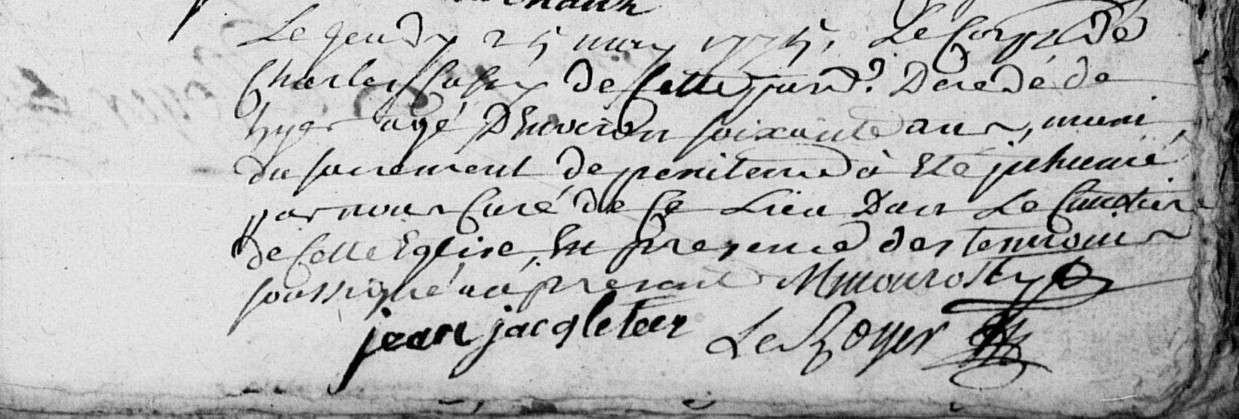 Le jeudy 25 may 1775, Le Corps de
Charles de Cette parr. Décédé de
hyer agé D'Environ soixante ans, muni
du sacrement de penitence à Eté inhumé
par nous Curé de Ce Lieu Dans Le Cimetiere
de Cette Eglise, En presence des temoins
soussigné au présent
jean jacq leteer Le Royer